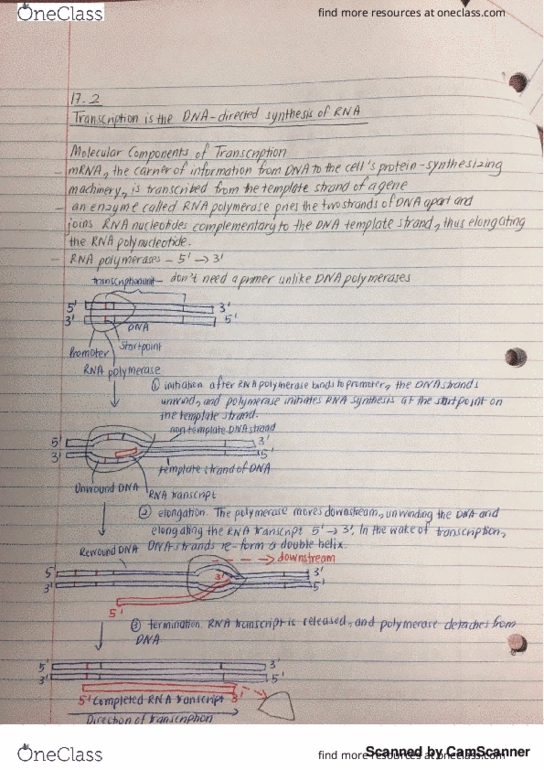 OneClass
find more resources at oneclass.com
17.2
Transcription is the DNA-directed synthesis of RNA
Molecular Components of Transcription
- mRNA, the carrier of information from DNA to the cell's protein-synthesizing
machinery, is transcribed from the template strand of a gene
- an enzyme called RNA polymerase pries the two strands of DNA apart and
joins RNA nucleotides complementary to the DNA template strand, thus elongating
the RNA polynucleotide.
- RNA polymerases - 5' → 3'
transcription unit - don't need a primer unlike DNA polymerases
5' 3'
3' 5'
DNA
Promoter Startpoint
RNA polymerase
① initiation. after RNA polymerase binds to promoter, the DNA strands
unwind, and polymerase initiates RNA synthesis at the startpoint on
the template strand.
non template DNA strand
5' 3'
3' 5'
template strand of DNA
Unwound DNA RNA transcript
② elongation. The polymerase moves downstream, unwinding the DNA and
elongating the RNA transcript 5' → 3'. In the wake of transcription,
Rewound DNA DNA strands re-form a double helix.
→ downstream
5' 3' 3'
3' 5'
5'
③ termination. RNA transcript is released, and polymerase detaches from
DNA
5' 3'
3' 5'
5' Completed RNA transcript 3'
Direction of transcription
OneClass
find more resources at oneclass.com
Scanned by CamScanner